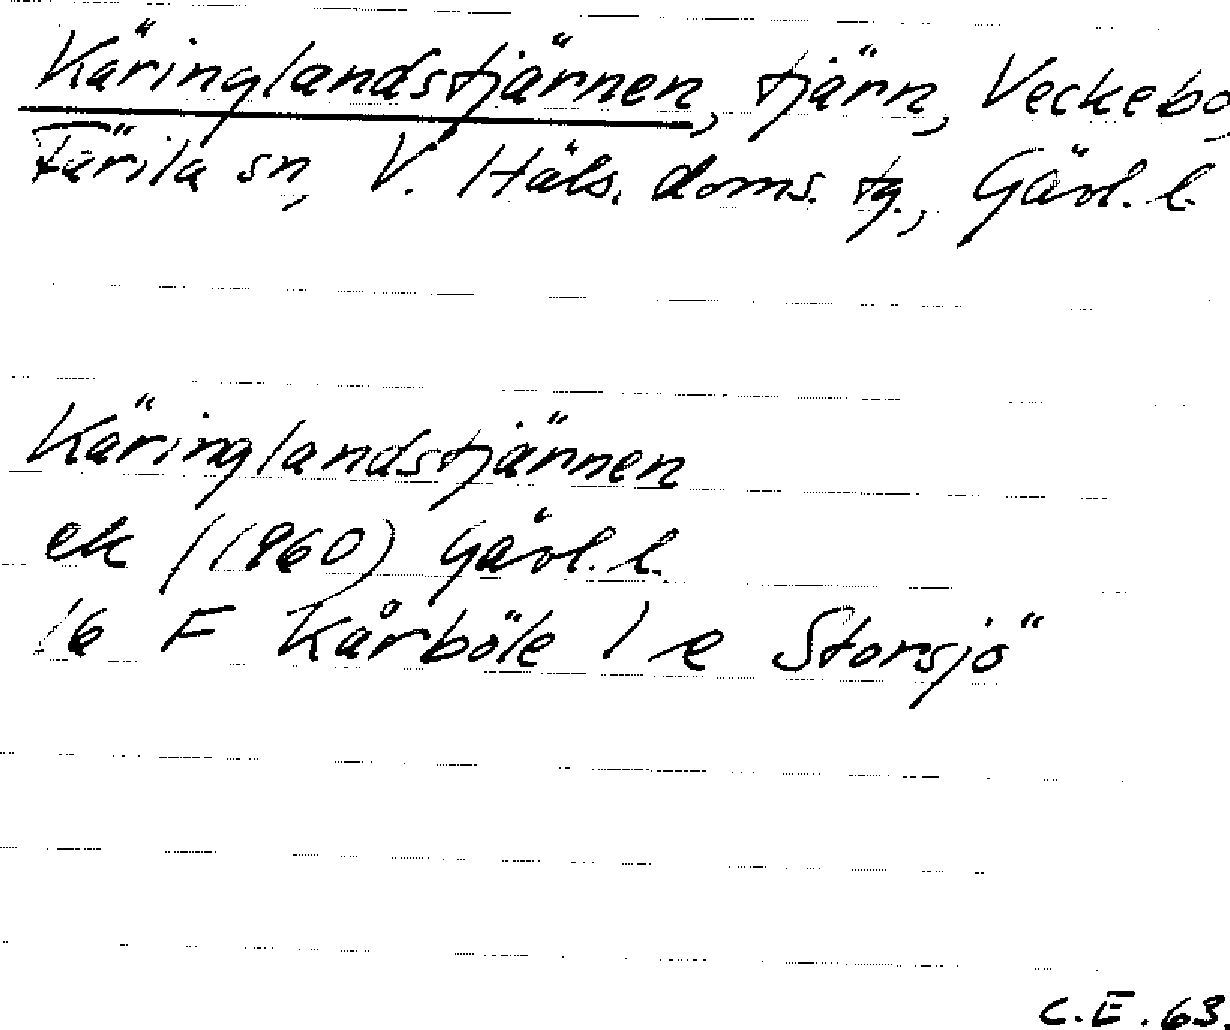 Käringlandstjärnen, tjärn, Veckebo,
Färila sn, V. Häls. doms. tg., Gävl. l.
Käringlandstjärnen
ek (1960) Gävl. l.
16 F Kårböle 1 e Storsjö
C.E. 63.